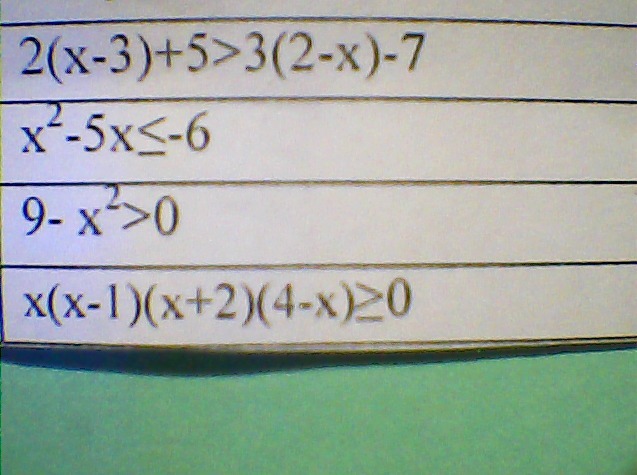 2(x-3)+5>3(2-x)-7
x²-5x≤-6
9- x²>0
x(x-1)(x+2)(4-x)≥0